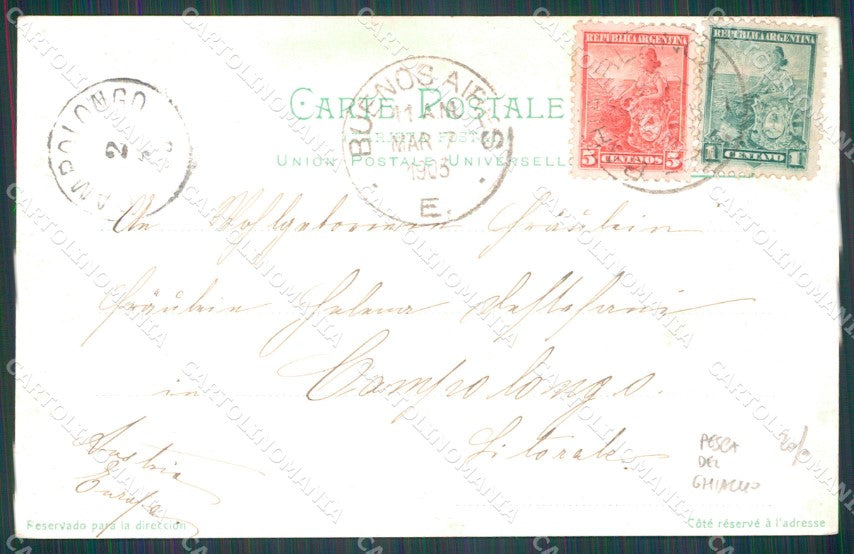 REPUBLICA ARGENTINA
REPUBLICA ARGENTINA
5 CENTAVOS 5
1 CENTAVO 1
CARTE POSTALE
UNION POSTALE UNIVERSELLE
BUENOS AIRES
11 AM
MAR 7
1903
E.
2
An Wohlgeborenen Fräulein
Fräulein Helena
in Campolongo.
Litorale.
Austria
Europa.
PESCA
DEL
GHIACCIO
Reservado para la dirección
Côté réservé à l'adresse
CARTOLINOMANIA